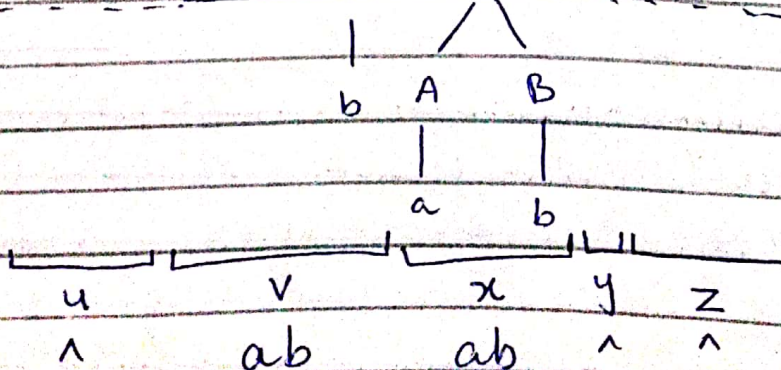 b A B
a b
u v x y z
^ ab ab ^ ^